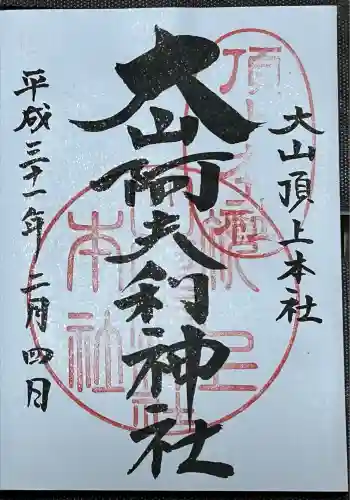 大山頂上本社
大山阿夫利神社
平成三十一年二月四日